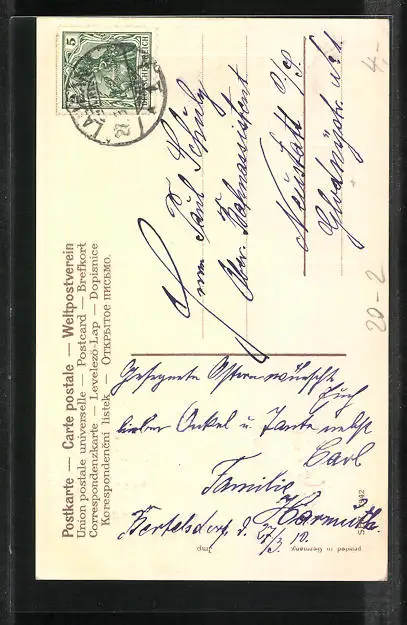 Postkarte — Carte postale — Weltpostverein
Union postale universelle — Postcard — Brefkort
Correspondenzkarte — Levelező-Lap — Dopisnice
Korespondenční listek — Открытое письмо.
5
DEUTSCHES REICH
Paul Schulz
Ober Bahnassistent
Neustadt O/S
Gesegnete Ostern wünscht
Euch
lieber Onkel u. Tante nebst
Carl
Familie
Harmuth.
Hertelsdorf d. 27/3. 10.
printed in Germany.
Imp.
4.-
20-2